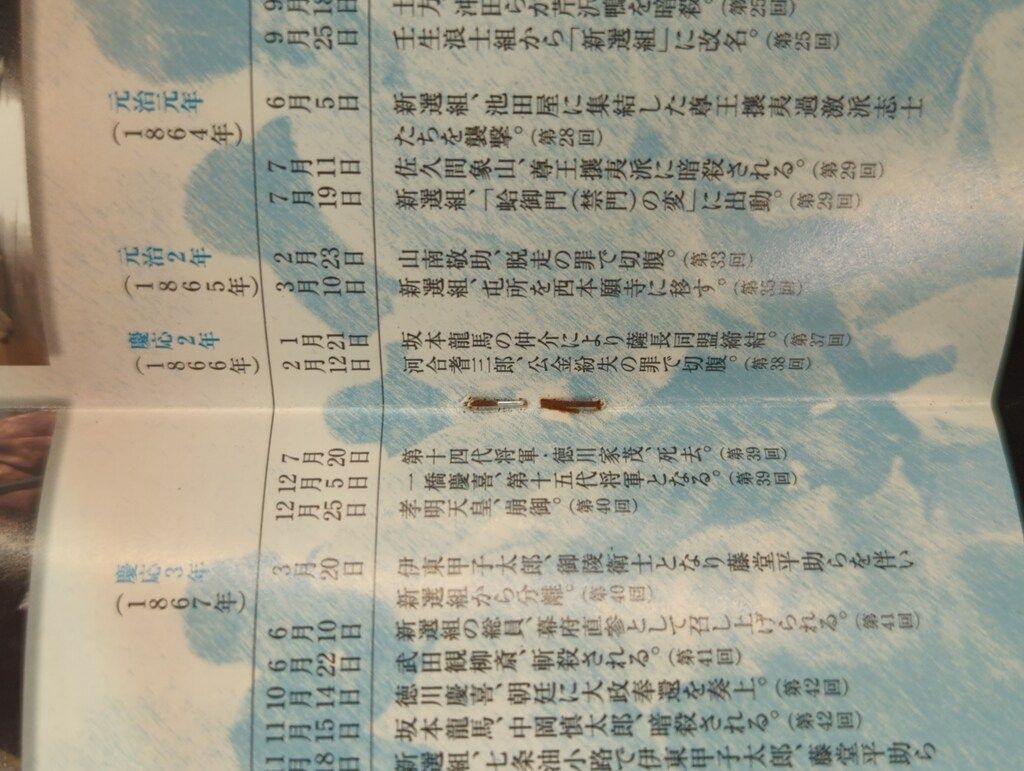 土方、沖田らが芹沢鴨を暗殺。（第25回）
9月25日
壬生浪士組から「新選組」に改名。（第25回）
元治元年
（1864年）
6月5日
新選組、池田屋に集結した尊王攘夷過激派志士
たちを襲撃。（第28回）
7月11日
佐久間象山、尊王攘夷派に暗殺される。（第29回）
7月19日
新選組、「蛤御門（禁門）の変」に出動。（第29回）
元治2年
（1865年）
2月23日
山南敬助、脱走の罪で切腹。（第33回）
3月10日
新選組、屯所を西本願寺に移す。（第35回）
慶応2年
（1866年）
1月21日
坂本龍馬の仲介により薩長同盟締結。（第37回）
2月12日
河合耆三郎、公金紛失の罪で切腹。（第38回）
7月20日
第十四代将軍・徳川家茂、死去。（第39回）
12月5日
一橋慶喜、第十五代将軍となる。（第39回）
12月25日
孝明天皇、崩御。（第40回）
慶応3年
（1867年）
3月20日
伊東甲子太郎、御陵衛士となり藤堂平助らを伴い
新選組から分離。（第40回）
6月10日
新選組の総員、幕府直参として召し上げられる。（第41回）
6月22日
武田観柳斎、斬殺される。（第41回）
10月14日
徳川慶喜、朝廷に大政奉還を奏上。（第42回）
11月15日
坂本龍馬、中岡慎太郎、暗殺される。（第42回）
18日
新選組、七条油小路で伊東甲子太郎、藤堂平助ら